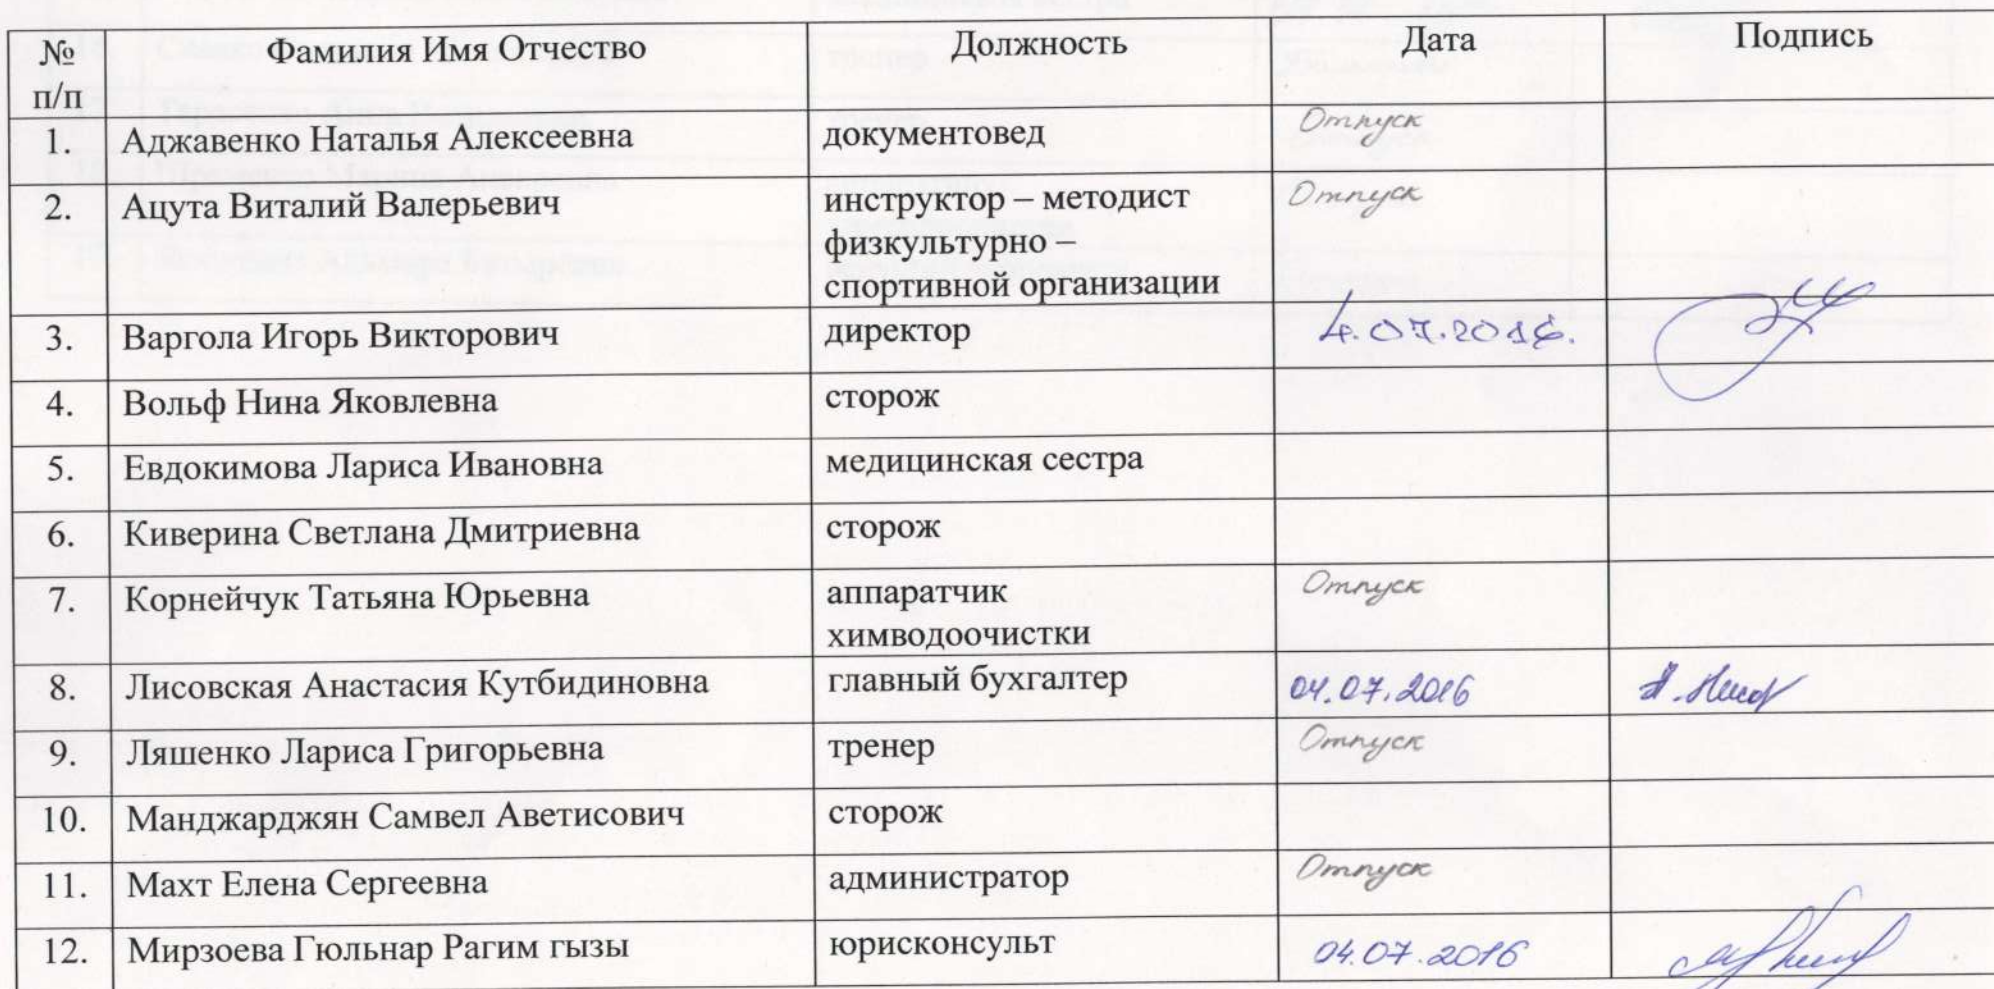 № п/п Фамилия Имя Отчество Должность Дата Подпись
1. Аджавенко Наталья Алексеевна документовед Отпуск
2. Ацута Виталий Валерьевич инструктор – методист Отпуск
физкультурно –
спортивной организации
3. Варгола Игорь Викторович директор 4.07.2016.
4. Вольф Нина Яковлевна сторож
5. Евдокимова Лариса Ивановна медицинская сестра
6. Киверина Светлана Дмитриевна сторож
7. Корнейчук Татьяна Юрьевна аппаратчик Отпуск
химводоочистки
8. Лисовская Анастасия Кутбидиновна главный бухгалтер 04.07.2016
9. Ляшенко Лариса Григорьевна тренер Отпуск
10. Манджарджян Самвел Аветисович сторож
11. Махт Елена Сергеевна администратор Отпуск
12. Мирзоева Гюльнар Рагим гызы юрисконсульт 04.07.2016